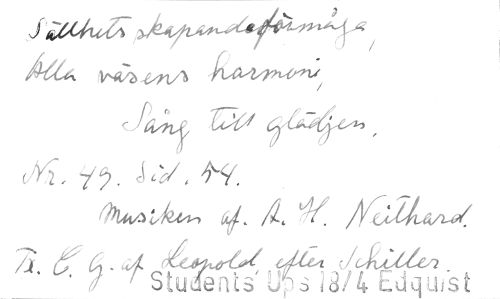 Sällhets skapande förmåga,
Alla väsens harmoni,
Sång till glädjen.
Nr. 49. Sid. 54.
Musiken af. A. H. Neithard.
Tx. C. G. af Leopold, efter Schiller.
Students Ups 18/4 Edquist